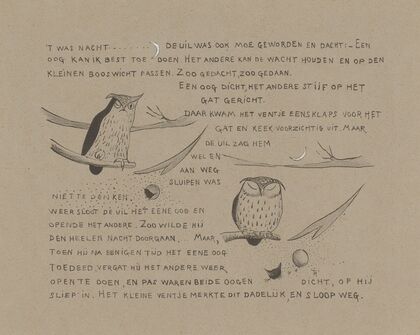 'T WAS NACHT........ DE UIL WAS OOK MOE GEWORDEN EN DACHT:- EEN
OOG KAN IK BEST TOE DOEN. HET ANDERE KAN DE WACHT HOUDEN EN OP DEN
KLEINEN BOOSWICHT PASSEN. ZOO GEDACHT, ZOO GEDAAN.
EEN OOG DICHT, HET ANDERE STIJF OP HET
GAT GERICHT.
DAAR KWAM HET VENTJE EENSKLAPS VOOR HET
GAT EN KEEK VOORZICHTIG UIT. MAAR
DE UIL ZAG HEM
WEL EN
AAN WEG
SLUIPEN WAS
NIET TE DENKEN.
WEER SLOOT DE UIL HET EENE OOG EN
OPENDE HET ANDERE. ZOO WILDE HIJ
DEN HEELEN NACHT DOORGAAN,... MAAR,
TOEN HIJ NA EENIGEN TIJD HET EENE OOG
TOEDEED, VERGAT HIJ HET ANDERE WEER
OPEN TE DOEN, EN DAAR WAREN BEIDE OOGEN DICHT, OF HIJ
SLIEP IN. HET KLEINE VENTJE MERKTE DIT DADELIJK, EN SLOOP WEG.